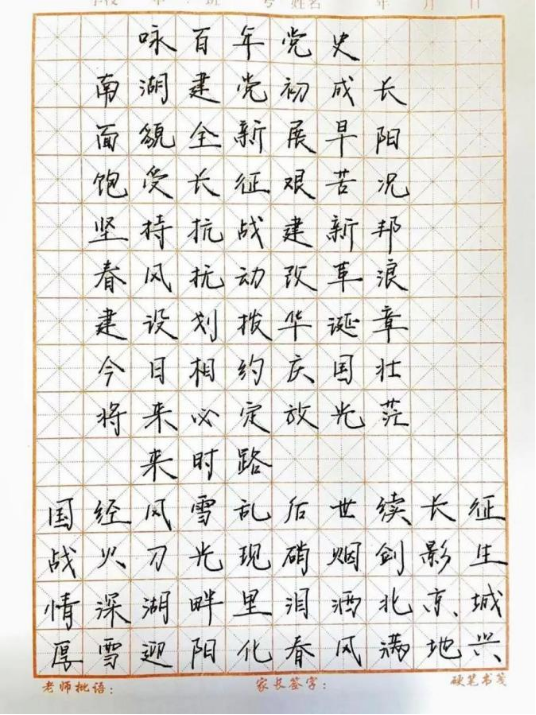 姓名 年 月 日
咏百年党史
南湖建党初成长
面貌全新展早阳
饱受长征艰苦况
坚持抗战建新邦
春风抚动改革浪
建设划拨华诞章
今日相约庆国壮
将来必定放光茫
来时路
国经风雪乱后世续长征
战火刀光现硝烟剑影生
情深湖畔里泪洒北京城
厚雪迎阳化春风满地兴
老师批语： 家长签字： 硬笔书笺